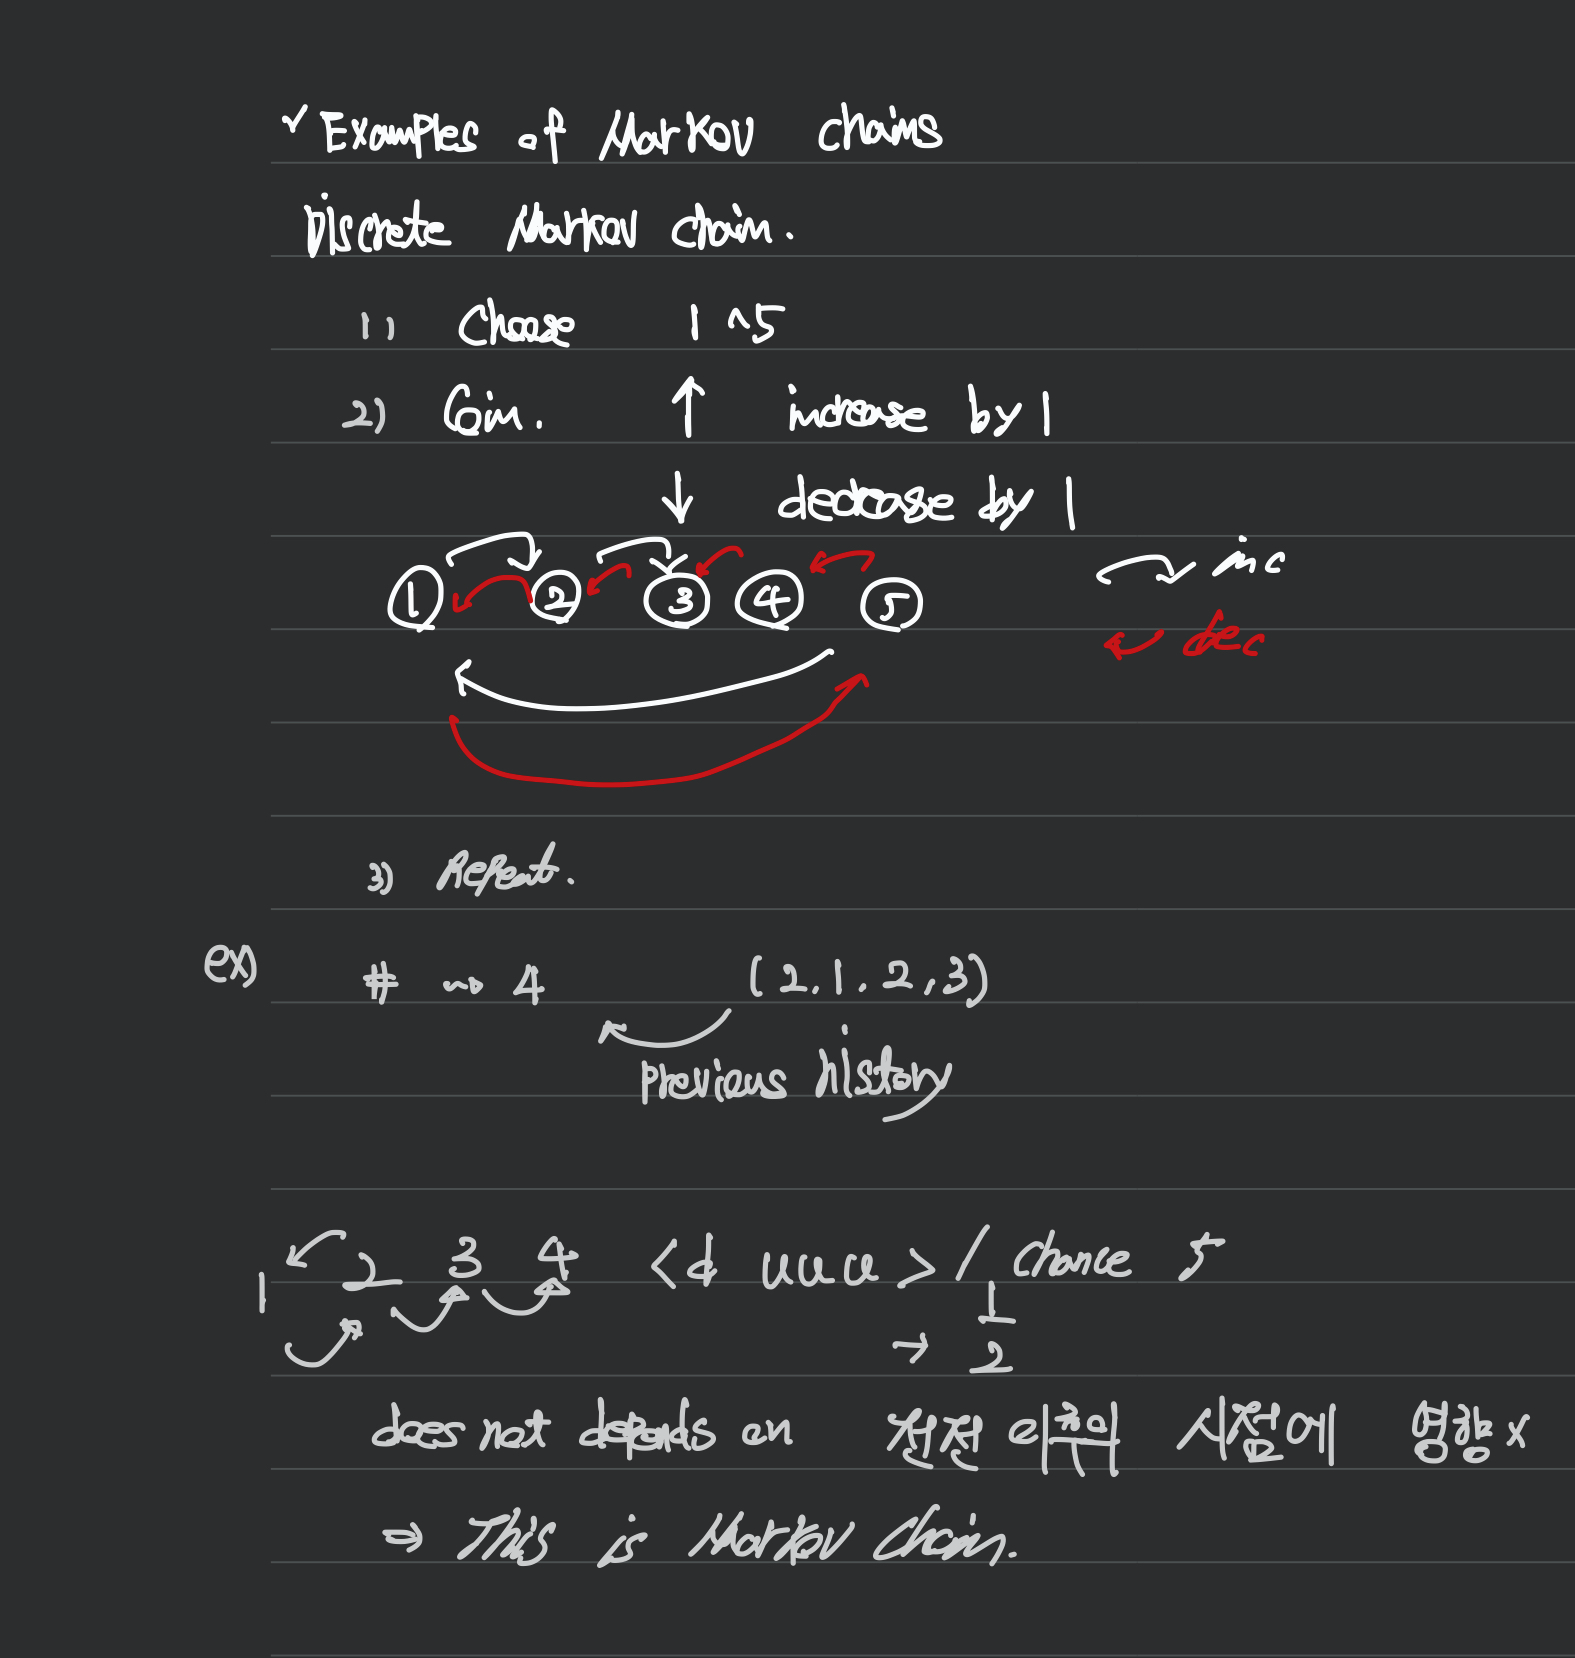 ✓ Examples of Markov chains
Discrete Markov chain.
1) Choose 1 ~5
2) Coin. ↑ increase by 1
↓ decrease by 1
1 2 3 4 5
inc
dec
3) Repeat.
ex) # → 4 (2, 1, 2, 3)
previous history
1 2 3 4 <d u u u > / chance 5
→ 1/2
does not depends on 전전 시점에 영향 x
⇒ This is Markov Chain.